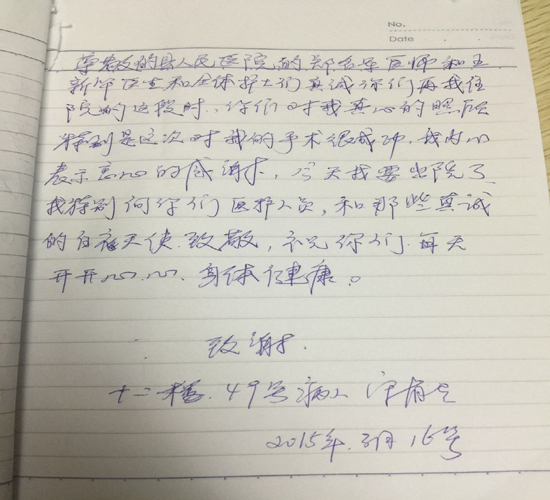 No.
Date
尊敬的县人民医院的郑名学医师和王
新华医生和全体护士们真诚你们再我住
院的这段时、你们对我真心的照顾
特别是这次对我的手术很成功,我内心
表示衷心的感谢,今天我要出院了
我特别向你们医护人员,和那些真诚
的白衣天使.致敬,祝你们.每天
开开心心.身体健康。
致谢.
十二楼.49号病人
2015年.3月16号